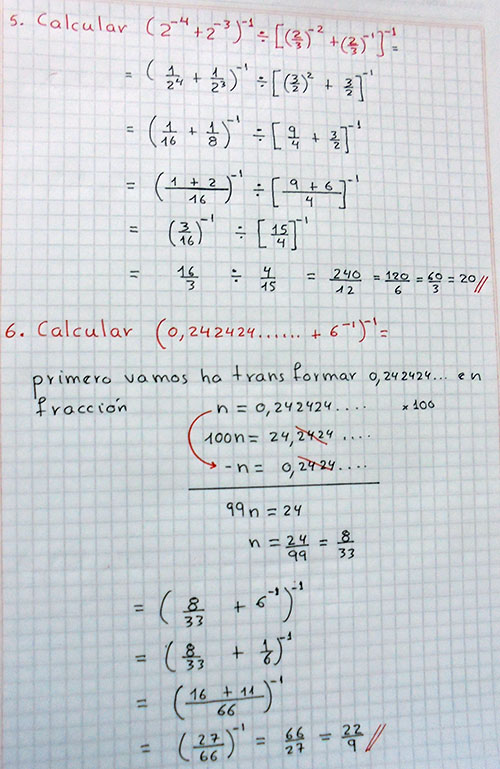 5. Calcular (2⁻⁴+2⁻³)⁻¹÷[(2/3)⁻²+(2/3)⁻¹]⁻¹=
= (1/2⁴ + 1/2³)⁻¹ ÷ [(3/2)² + 3/2]⁻¹
= (1/16 + 1/8)⁻¹ ÷ [9/4 + 3/2]⁻¹
= ((1 + 2)/16)⁻¹ ÷ [(9 + 6)/4]⁻¹
= (3/16)⁻¹ ÷ [15/4]⁻¹
= 16/3 ÷ 4/15 = 240/12 = 120/6 = 60/3 = 20//
6. Calcular (0,242424...... + 6⁻¹)⁻¹=
primero vamos ha transformar 0,242424... en
fracción n = 0,242424.... ×100
100n = 24,2424....
-n = 0,2424....
99n = 24
n = 24/99 = 8/33
= (8/33 + 6⁻¹)⁻¹
= (8/33 + 1/6)⁻¹
= ((16 + 11)/66)⁻¹
= (27/66)⁻¹ = 66/27 = 22/9//